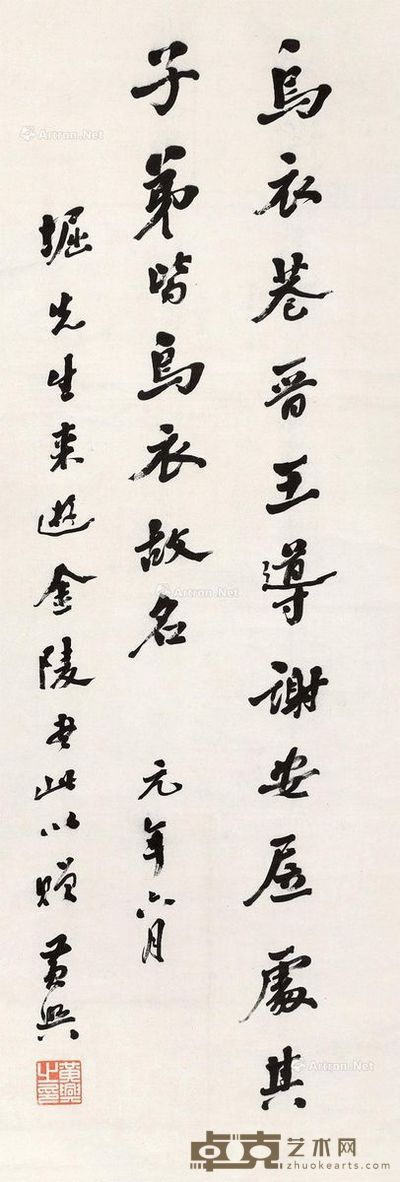 烏衣巷晋王導謝安居處其
子弟皆烏衣故名 元年六月
堀先生来遊金陵書此以贈 黄興
黃興之印
Artron.Net
Artron.Net
Artron.Net
卓克艺术网
zhuokearts.com